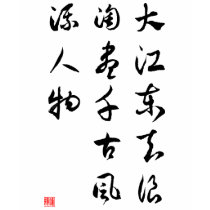 大江东去浪
淘盡千古風
流人物